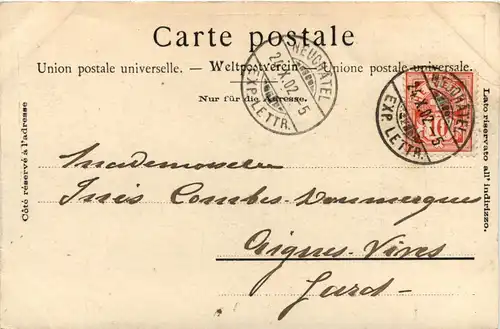 Carte postale
Union postale universelle. — Weltpostverein. — Unione postale universale.
Nur für die Adresse.
Côté réservé à l'adresse
NEUCHATEL
24.X.02.-5
EXP. LETTR.
NEUCHATEL
24.X.02.-5
EXP. LETTR.
10
Lato riservato all'indirizzo.
Mademoiselle
Inès Combes-Dounergues
Aigues-Vives
Gard